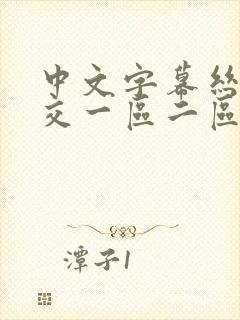 中文字幕絲
交一區二區
潭子1